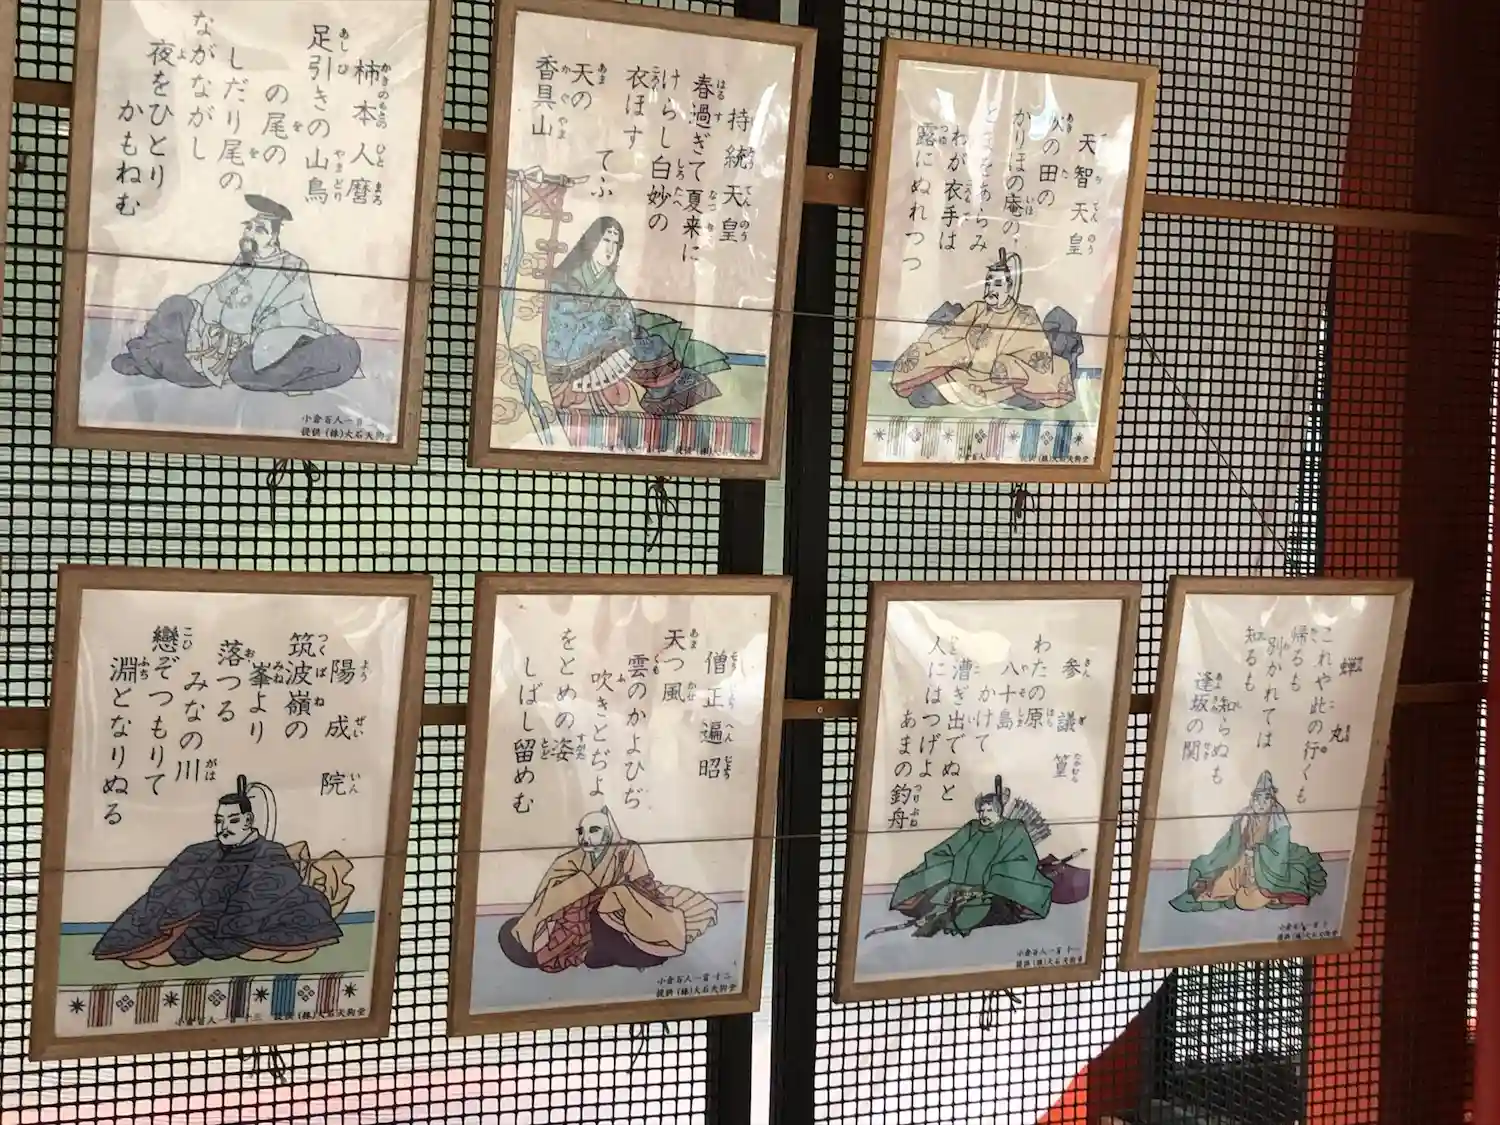 天智天皇
てんのう
秋の田の
かりほの庵の
とまをあらみ
わが衣手は
露にぬれつつ
提供(株)大石天狗堂
持統天皇
てんのう
春過ぎて夏来に
けらし白妙の
衣ほす
てふ
天の
香具山
提供(株)
柿本人麿
かきのもとひとまろ
足引きの山鳥
あしびやまどり
の尾の
しだり尾の
ながながし
夜をひとり
かもねむ
小倉百人一首
提供(株)大石天狗堂
蝉丸
これや此の行くも
帰るも
別かれては
知るも
知らぬも
逢坂の関
小倉百人一首十
提供(株)大石天狗堂
参議篁
さんぎたかむら
わたの原
八十島
かけて
漕ぎ出でぬと
人にはつげよ
あまの釣舟
小倉百人一首十一
提供(株)大石天狗堂
僧正遍昭
そうじょうへんじょう
天つ風
雲のかよひぢ
吹きとぢよ
をとめの姿
しばし留めむ
小倉百人一首十二
提供(株)大石天狗堂
陽成院
ようぜいいん
筑波嶺の
つくばね
峯より
落つる
みなの川
戀ぞつもりて
淵となりぬる
小倉百人一首十三
提供(株)大石天狗堂